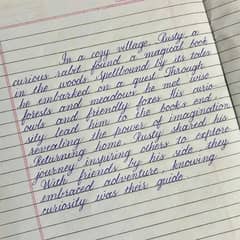 In a cozy village, Rusty, a
curious rabit found a magical book
in the woods. Spellbound by its tales
he embarked on a quest. Through
forests and meadows, he met wise
owls and friendly foxes. His curio-
sity lead him to the book's end,
revealing the power of imagination
Returning home, Rusty shared his
journey inspiring others to explore
With friends by his side they
embraced adventure, knowing
curiosity was their guide.